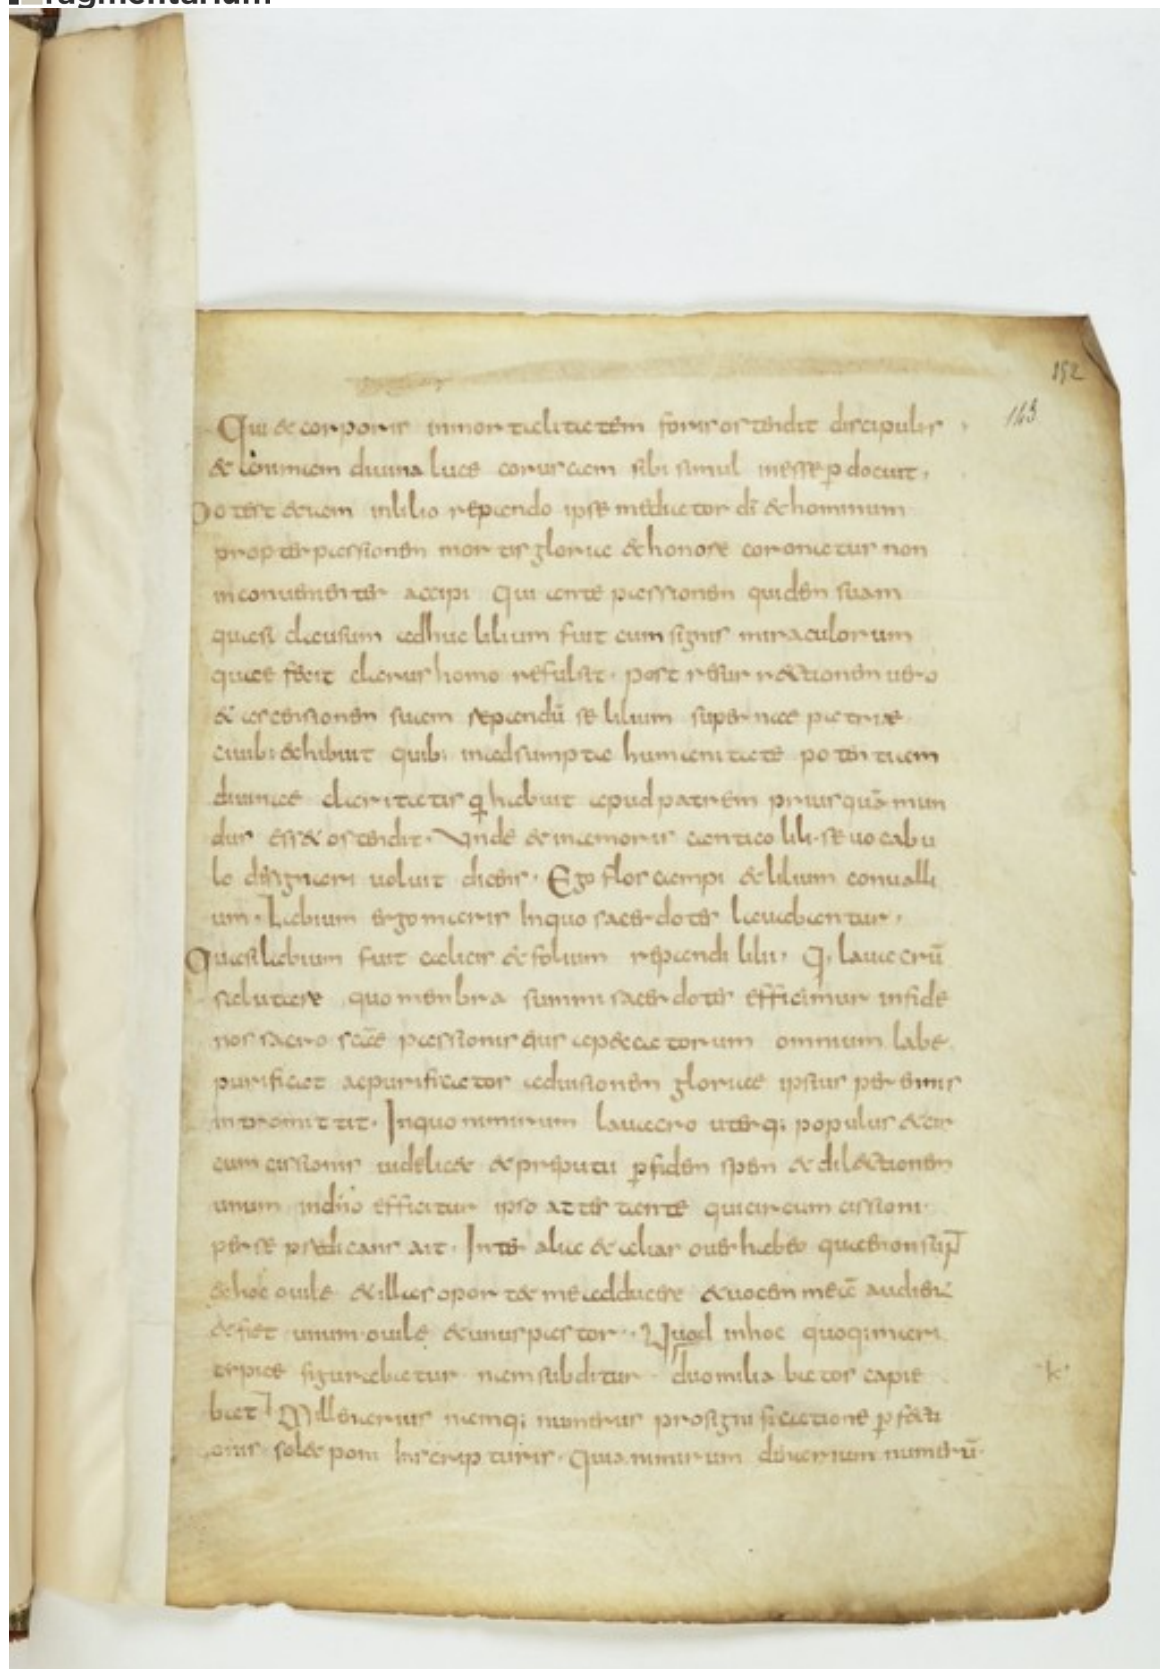 ragmentarium
152
143
Qui & corporis inmortalitatem foris ostendit discipulis
& animam divina luce coruscam sibi simul inesse ꝑdocuit.
Potest &iam inlilio repando ipse mediator dī & hominum
propter passionem mortis gloria & honore coronatus non
inconvenienter accipi Qui ante passionem quidem suam
quasi clausum adhuc lilium fuit cum signis miraculorum
quae fecit clarus homo refulsit. post resurrectionem uero
& ascensionem suam repandū se lilium supernae patriae
ciuib; exhibuit quib; inadsumpta humanitate potentiam
divinae claritatis q̄ habuit apud patrem priusquā mun
dus ess& ostendit. Unde & inamoris cantico lilii se uocabu
lo designari voluit dicens. Ego flos campi & lilium convalli
um. Labium ergo maris Inquo sacerdotes lavabantur.
Quasi labium fuit calicis & folium repandi lilii. Q; lavacrū
salutare quo menbra summi sacerdotis efficimur infide
nos sacro scāe passionis eius apeccatorum omnium labe
purificat ac purificatos aduisionem gloriae ipsius perennis
intromittit. Inquo nimirum lauacro uterq; populus & cir
cumcissionis uidelic& & preputii ꝑfidem spem & dilectionem
unum indn̄o efficitur ipso attestante quicircumcissioni
per se predicans ait. Inter alia & alias oues habeo quae non sun̄
exhoc ouile & illas oport& me adducere & uocem meā audien̄
& fi& unum ouile & unus pastor. Quod inhoc quoq; mari
typice figurabatur nam subditur duomilia batos capie
bat Millenarius namq; numerus prosignificatione ꝑfecti
onis sol& poni Inscripturis. Quia nimirum denarium numerū
k